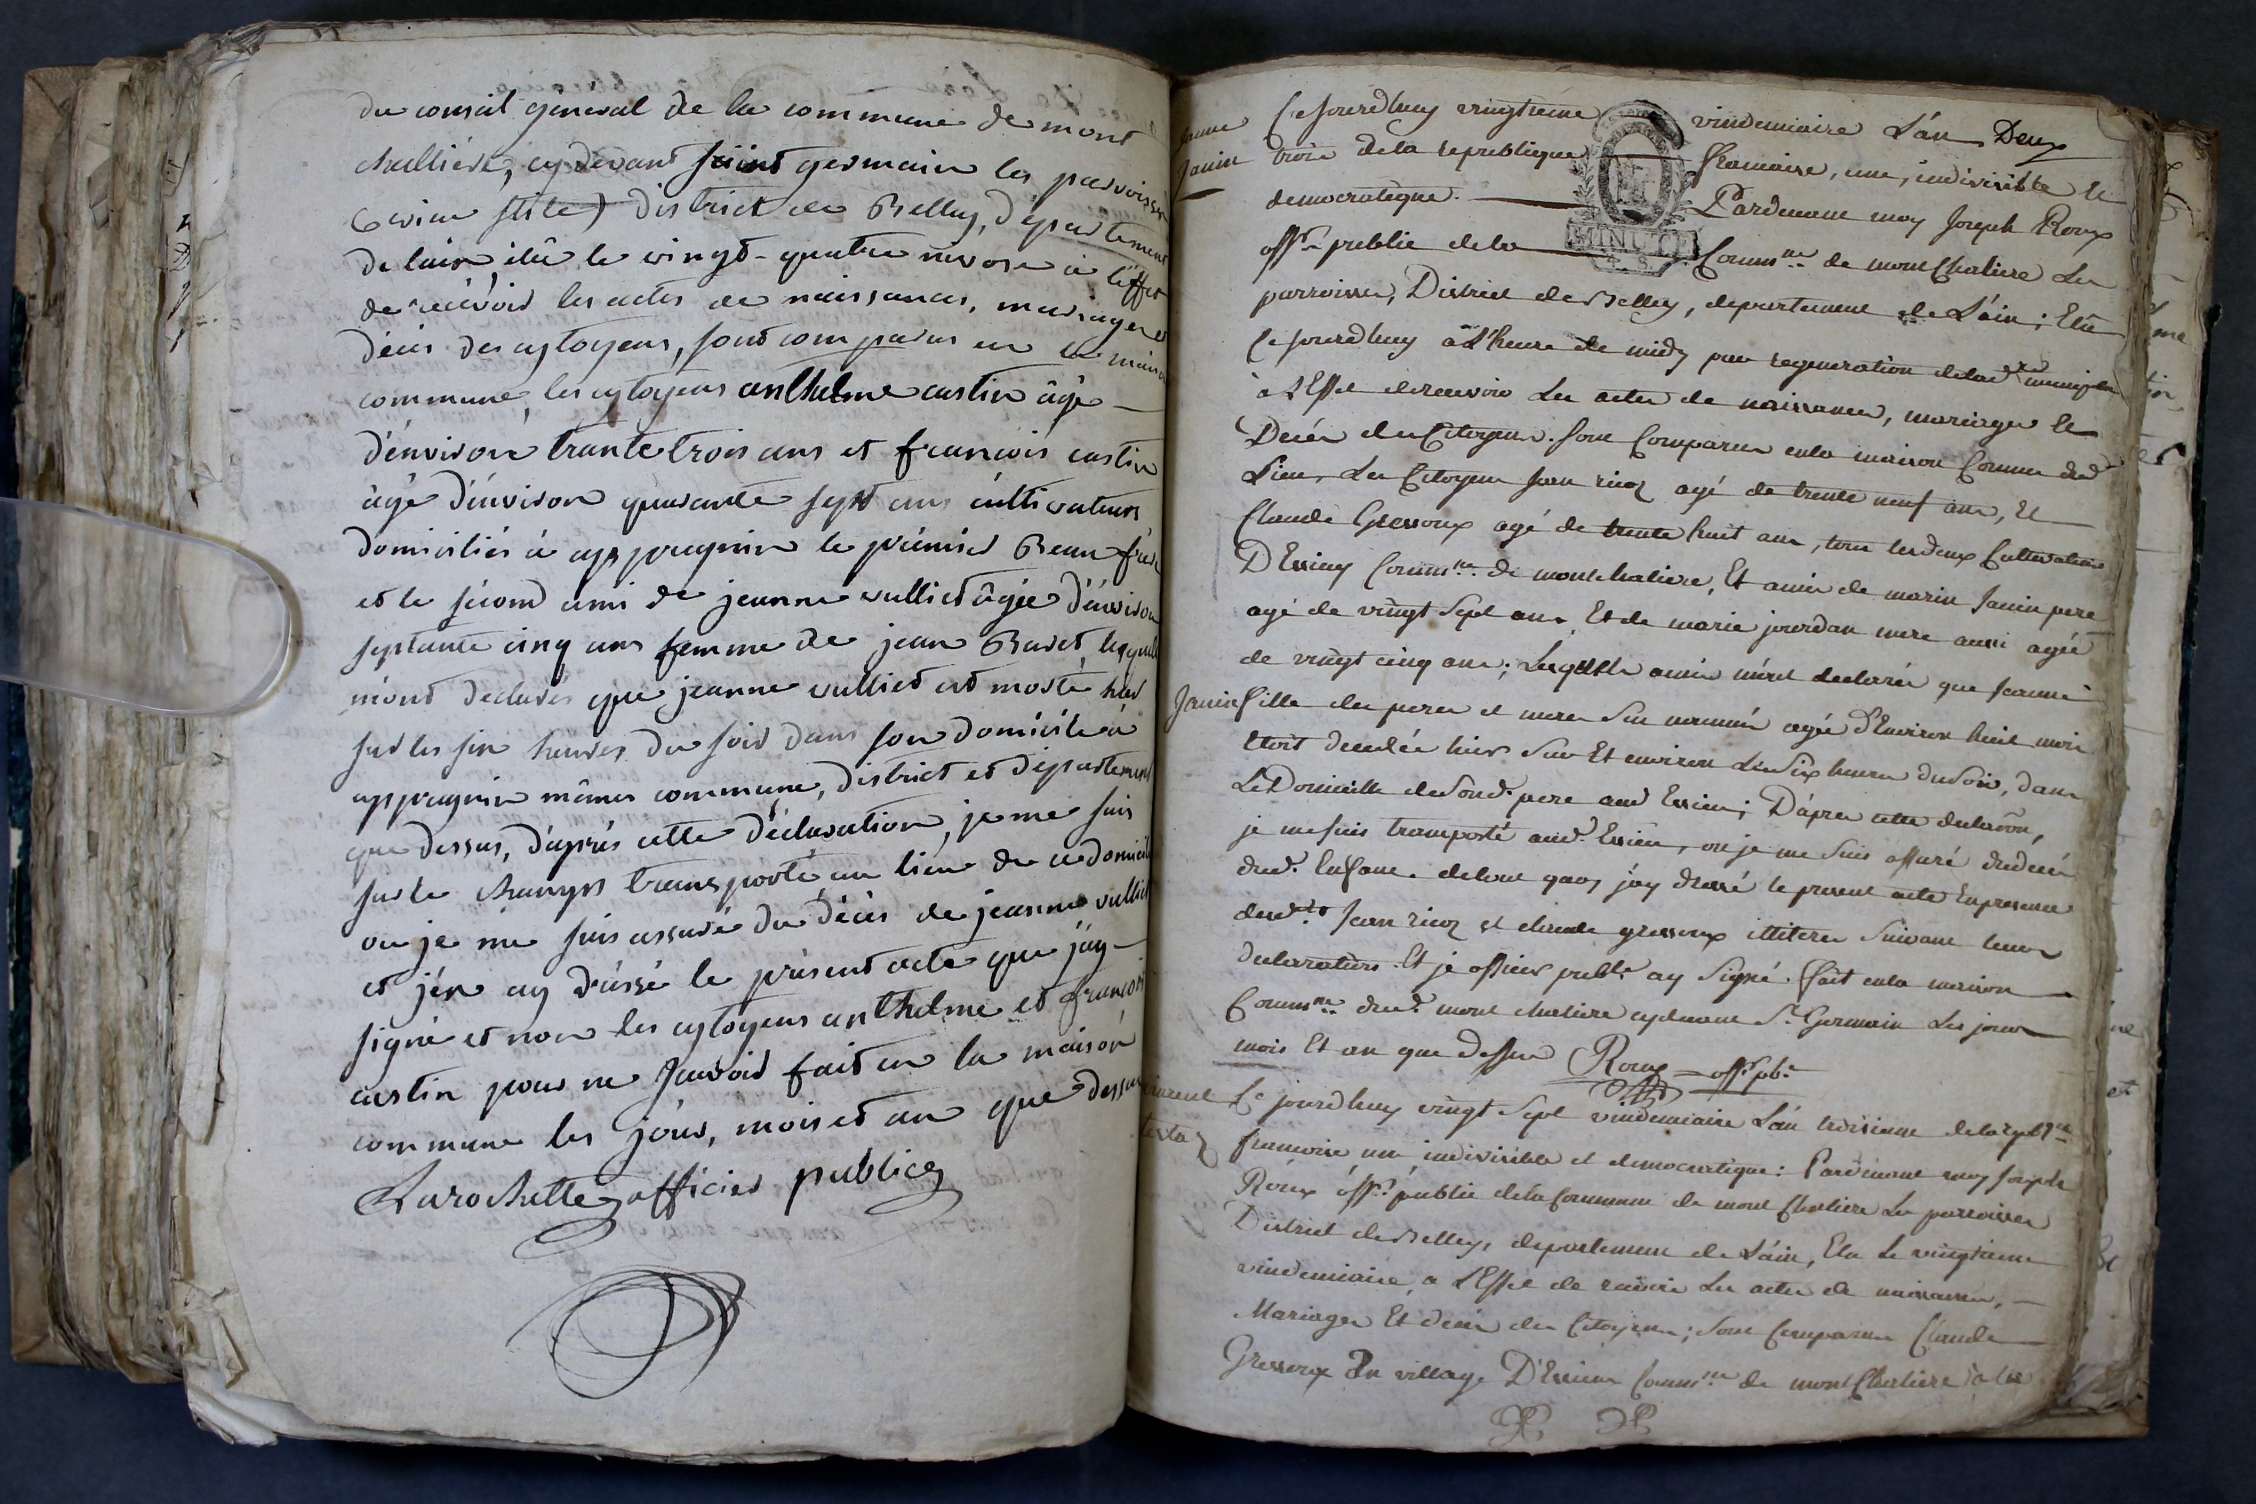 du conseil général de la commune de mont
challière, cy devant saint germain les parroisses
(vieux stile) district de Belley, département
de lain élû le vingt-quatre nivose à l'éffet
de récévoir les actes de naissances, mariages et
décès des cytoyens, sont comparus en la maison
commune, les cytoyens anthelme custin âgé
d'énviron trante trois ans et francois custin
âgé d'énviron quarante sept ans cultivateurs
domiciliés à appregnin le prémier Beau frère
et le sécond ami de jeanne vulliet âgée d'énviron
septante cinq ans femme de jean Baret lesquels
m'ont déclarés que jeanne vulliet est morte hier
sur les six heures du soir dans son domicile à
appregnin mêmes commune, district et département
que dessus, d'après cette déclaration, je me suis
sur le champs transporté au lieu de ce domicile
ou je me suis assuré du décès de jeanne vulliet
et j'én ay dréssé le présent acte que j'ay
signé et non les cytoyens anthelme et francois
custin pour ne scavoir fait en la maison
commune les jour, mois et an que dessus
Larochette officier public
Jeanne
Janin
Ce jourdhuy vingtieme vindemiaire L'án Deux
trois de la republique francaise, une, indivisible et
democratique. Pardevant moy Joseph Roux
MINUTE
offr. public de la Commne. de mont Chaliere Les
parroisses, District de Belley, departement de L'áin; Elû
Ce jourdhuy à L'heure de midy par regeneration de lad.
à L'Effet de recevoir Les actes de naissances, mariages Et
Decés des Citoyens. Sont Comparus en la maison Commune dud.
Lieu, Les Citoyens Jean ricoz agé de trente neuf ans, Et
Claude Gressoux agé de trente huit ans, tous les deux Cultivateurs
D'Essieu Commne. de montchaliere, Et amis de marin Janin pere
agé de vingt Sept ans, Et de marie jourdan mere aussi agée
de vingt cinq ans; Lesquels amis m'ont declarés que Jeanne
Janin fille des peres et meres Sus nommés agée d'Environ huit mois
Etoit decedée hier Sur Et environ Les Six heures du Soir, dans
Le Domicille de Sond. pere aud Essieu; D'ápres cette declaration,
je me suis transporté aud. Essieu, ou je me Suis assuré du decés
dud. Enfant. de tout quoy j'ay dressé le present acte En presence
desdts Jean ricoz et claude gressoux illiteres Suivant leurs
declarations. Et je officier public. ay Signé. fait en la maison
Commne. dud. mont chaliere cydevant St. Germain Les jour
mois Et an que Dessus Roux offr. pb.
Ce jourdhuy vingt Sept vindemiaire L'án troisieme de la
francoise une indivisible et democratique: Pardevant moy Joseph
Roux off.r public de la Commune de mont Chaliere Les parroisses
District de Belley, departement de L'áin, Elu Le vingtieme
vindemiaire, a L'Effet de recevoir Les actes de naissances,
Mariages Et decés des Citoyens; Sont Comparus Claude
Gressoux du village D'Essieu Commne. de mont Chaliere